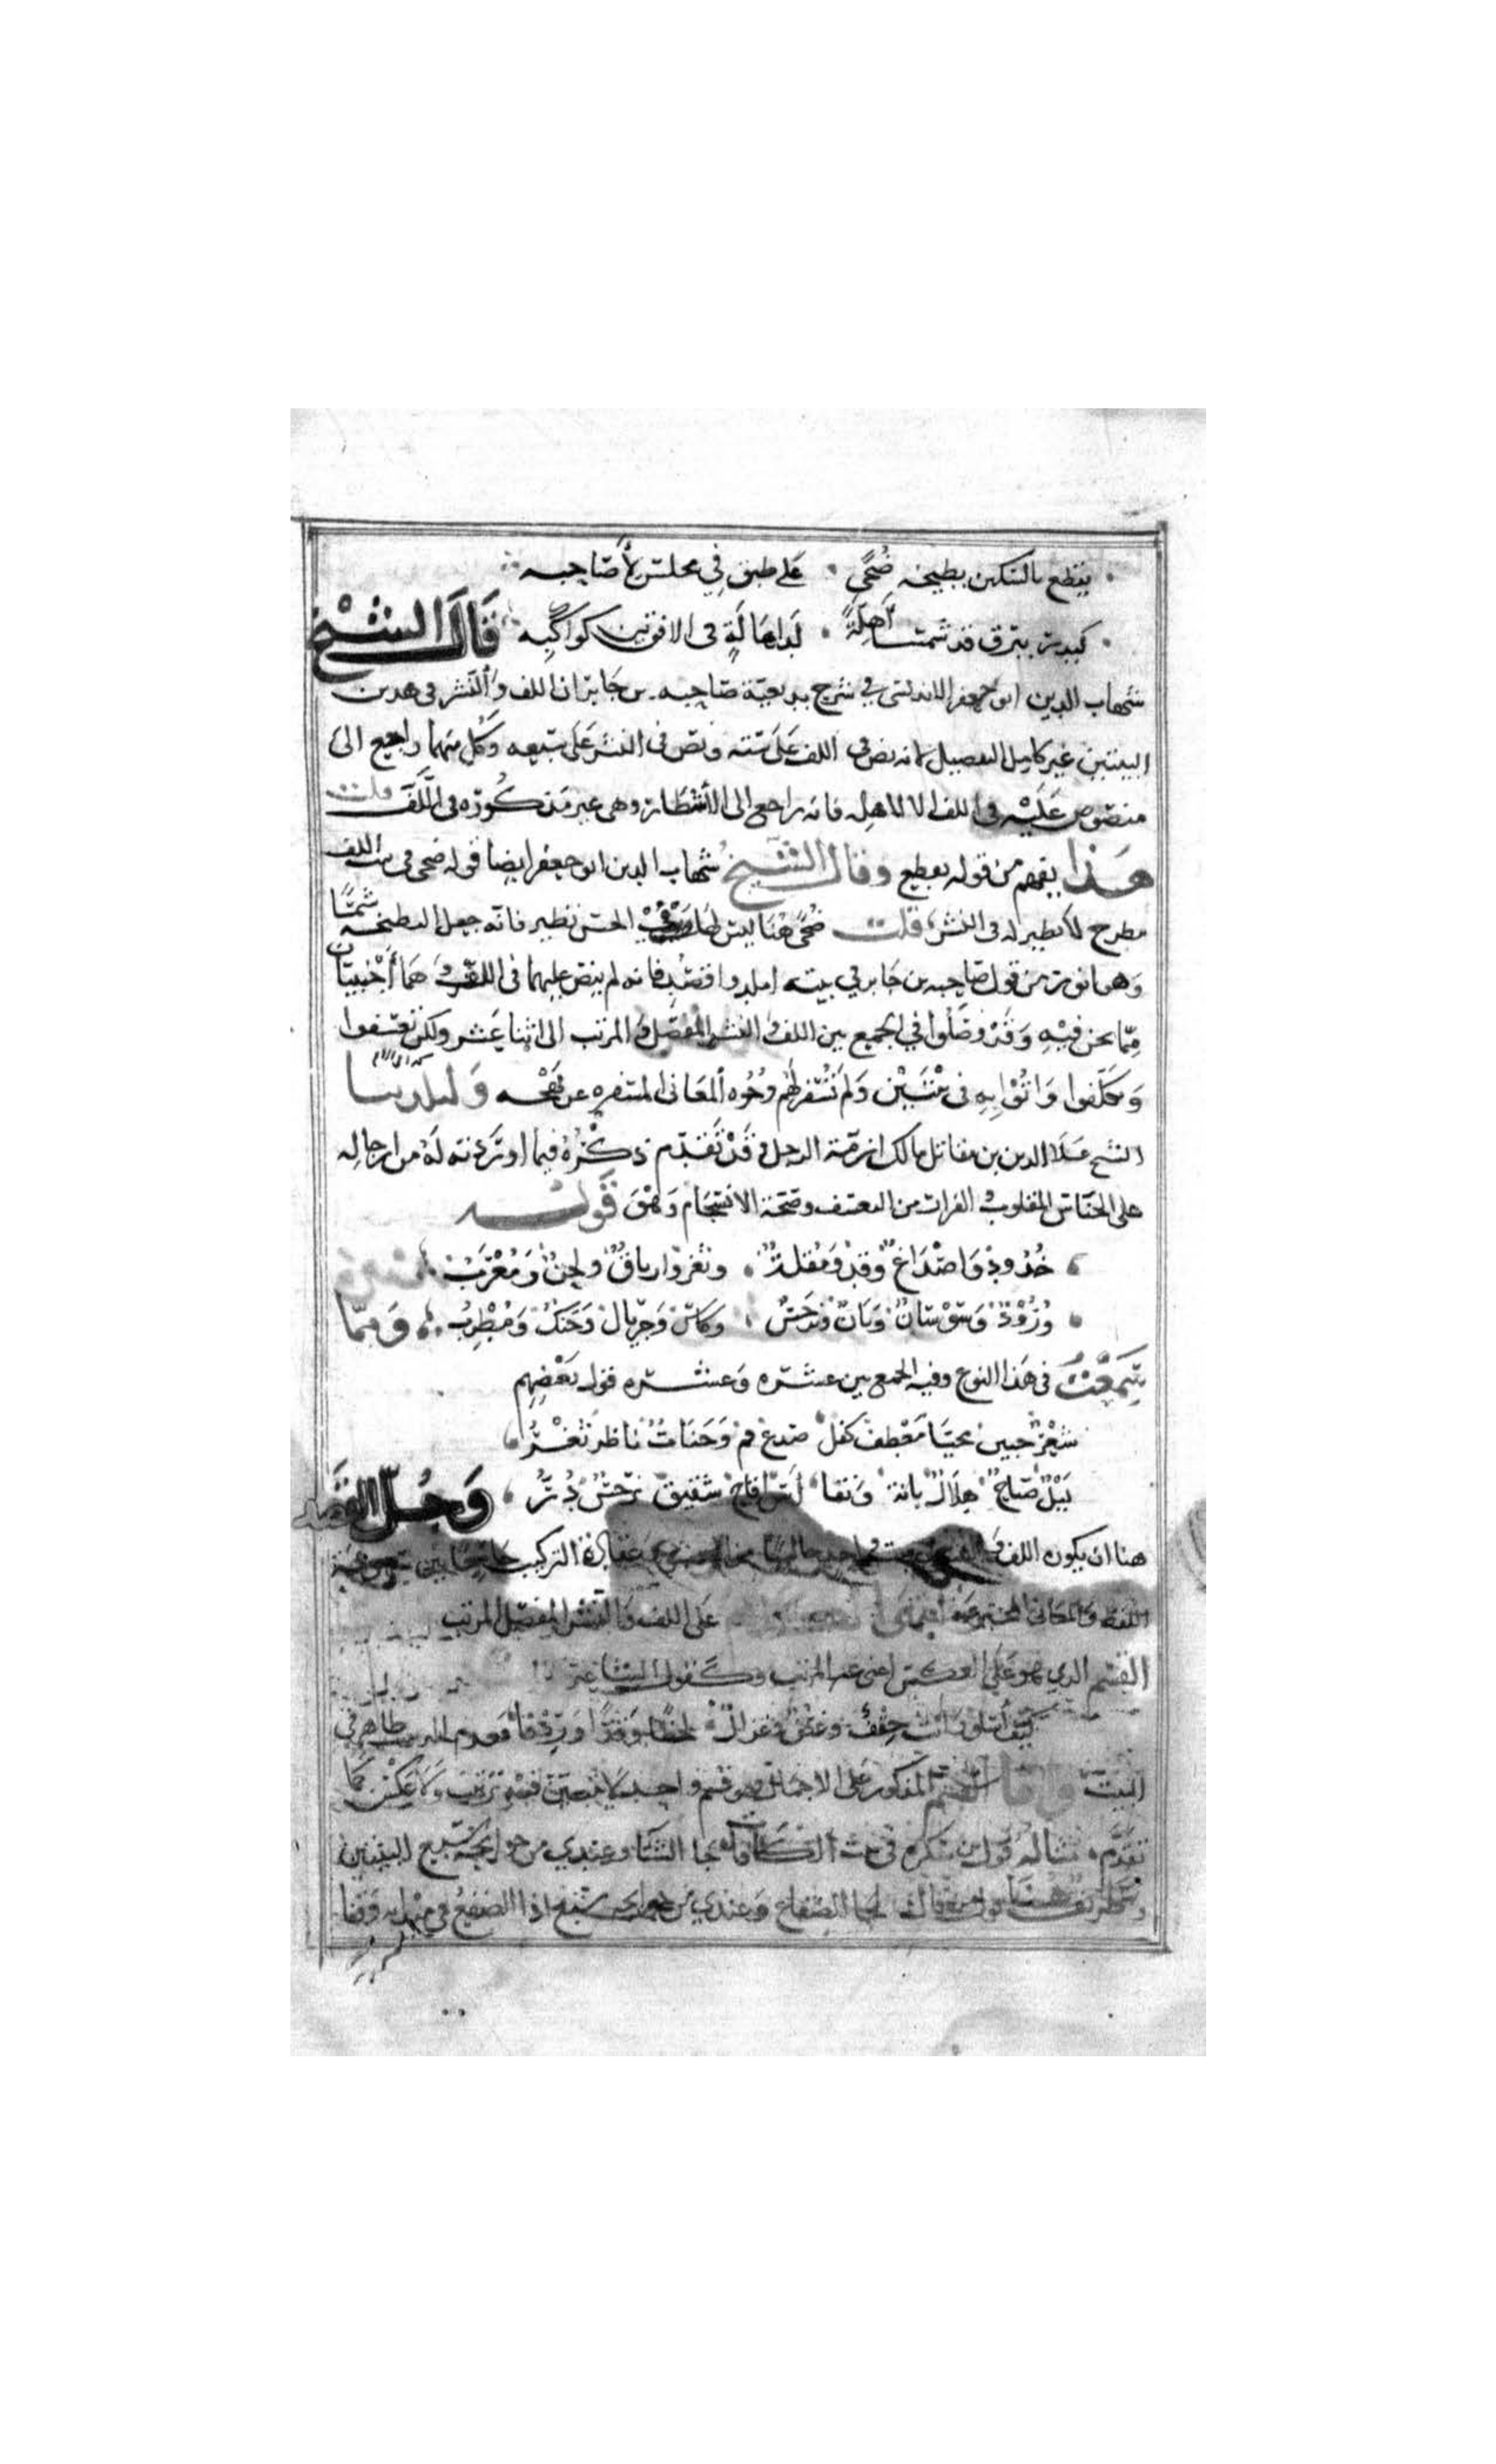 يقطع بالسكين بطيخة ضحى على طبق في مجلس لأصاحبه
كبدر ببرق قد شمسا أهلة لدا هالة في الافق بين كواكبه قال الشيخ
شهاب الدين ابو جعفر الاندلسي في شرح بديعية صاحبه بن جابر ان اللف والنشر في هذين
البيتين غير كامل التفصيل لانه نص في اللف على ستة ونص في النشر على سبعة وكل منهما راجع الى
منصوص عليه في اللف الا الاهله فانه راجع الى الأشطار وهي غير مذكورة في اللف قلت
هذا يفهم من قوله يقطع وقال الشيخ شهاب الدين ابو جعفر ايضا قوله ضحى في بيت اللف
مطرح لا نظير له في النشر قلت ضحى هنا ليس لها في الحسن نظير فانه جعل البطيخه شمسا
وهو انور من قول صاحبه بن جابر في بيته فانه لم ينص عليهما في اللف وهما أجنبيان
مما نحن فيه وقد وصلوا في الجمع بين اللف والنشر المفصل المرتب الى اثنا عشر ولكن تعسفوا
وتكلفوا واتوا به في بيتين ولم تسفر لهم وجوه المعاني المسفره عن بهجه
الشيخ علاء الدين بن مقاتل مالك ازمة الزجل وقد تقدم ذكره فيما اوردته له من ازجاله
على الجناس المقلوب من التعسف وصحة الانسجام وهو قوله
خدود واصداغ وقد ومقلة وثغر وارياق ولحن ومعرب
ورود وسوسان وبان ونرجس وكاس وجريال وجنك ومطرب ومما
سمعت في هذا النوع وفيه الجمع بين عشره وعشره قول بعضهم
شعر جبين محيا معطف كفل صدغ فم وجنات ناظر ثغر
ليل صباح هلال بانة ونقا آس اقاح شقيق نرجس در وجل القصد
هنا ان يكون اللف والنشر في بيت واحد خاليا من الحشو وعقادة التركيب جامعا بين سهولة
اللفظ والمعاني المخترعة على اللف والنشر المفصل المرتب
القسم الذي هو على العكس اعني غير المرتب وكقول الشاعر
كيف أسلو وانت حقف وغصن وغزال لحظا وقدا وردفا وعدم الترتيب ظاهر في
البيت واما القسم المذكور على الاجمال وهو قسم واحد لا يتبين فيه ترتيب ولا عكس كما
تقدم مثاله قول بن سكره في بيت الكافات جا الشتا وعندي من حوايجه سبع البيتين